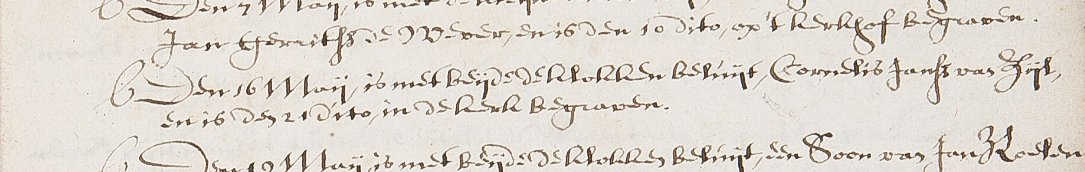 6 Den 7 Maij, is met de
Jan Gerritsz de Wever, en is den 10 dito, op 't kerkhof begraven.
6 Den 16 Maij, is met beijde de klokken beluijt, Cornelis Jansz van Zijl,
en is den 21 dito, in de kerk begraven.
6 Den 19 Maij, is met beijde de klokken beluijt, een Soon van Jan Roelen